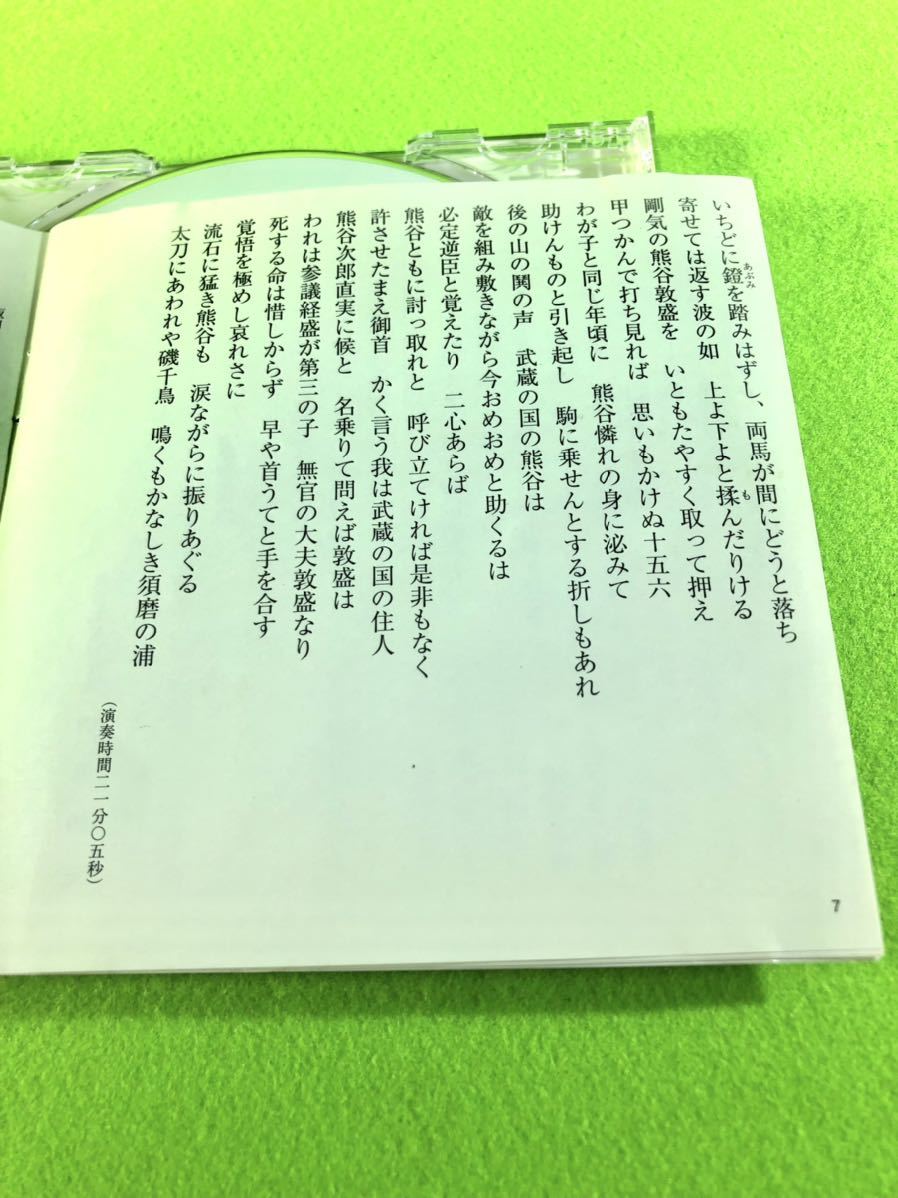 いちどに鐙を踏みはずし、両馬が間にどうと落ち
あぶみ
寄せては返す波の如　上よ下よと揉んだりける
も
剛気の熊谷敦盛を　いともたやすく取って押え
甲つかんで打ち見れば　思いもかけぬ十五六
わが子と同じ年頃に　熊谷憐れの身に泌みて
助けんものと引き起し　駒に乗せんとする折しもあれ
後の山の鬨の声　武蔵の国の熊谷は
敵を組み敷きながら今おめおめと助くるは
必定逆臣と覚えたり　二心あらば
熊谷ともに討っ取れと　呼び立てければ是非もなく
許させたまえ御首　かく言う我は武蔵の国の住人
熊谷次郎直実に候と　名乗りて問えば敦盛は
われは参議経盛が第三の子　無官の大夫敦盛なり
死する命は惜しからず　早や首うてと手を合す
覚悟を極めし哀れさに
流石に猛き熊谷も　涙ながらに振りあぐる
太刀にあわれや磯千鳥　鳴くもかなしき須磨の浦
（演奏時間二一分〇五秒）
7